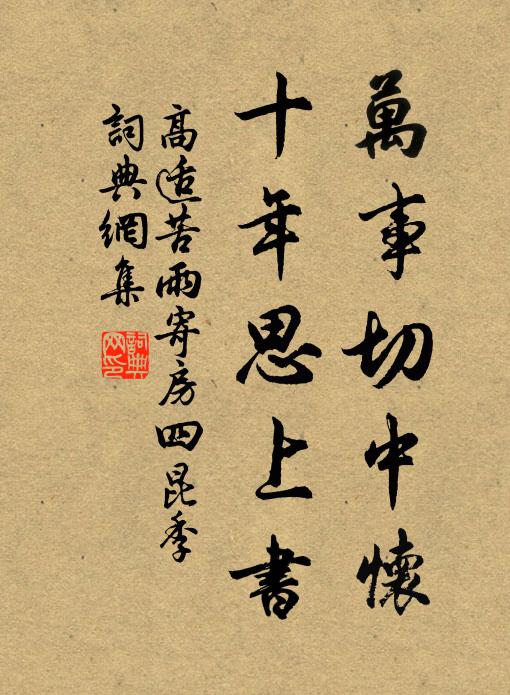 萬事切中懷
十年思上書
高适苦雨寄房四昆季
詞典網集
詞典网印